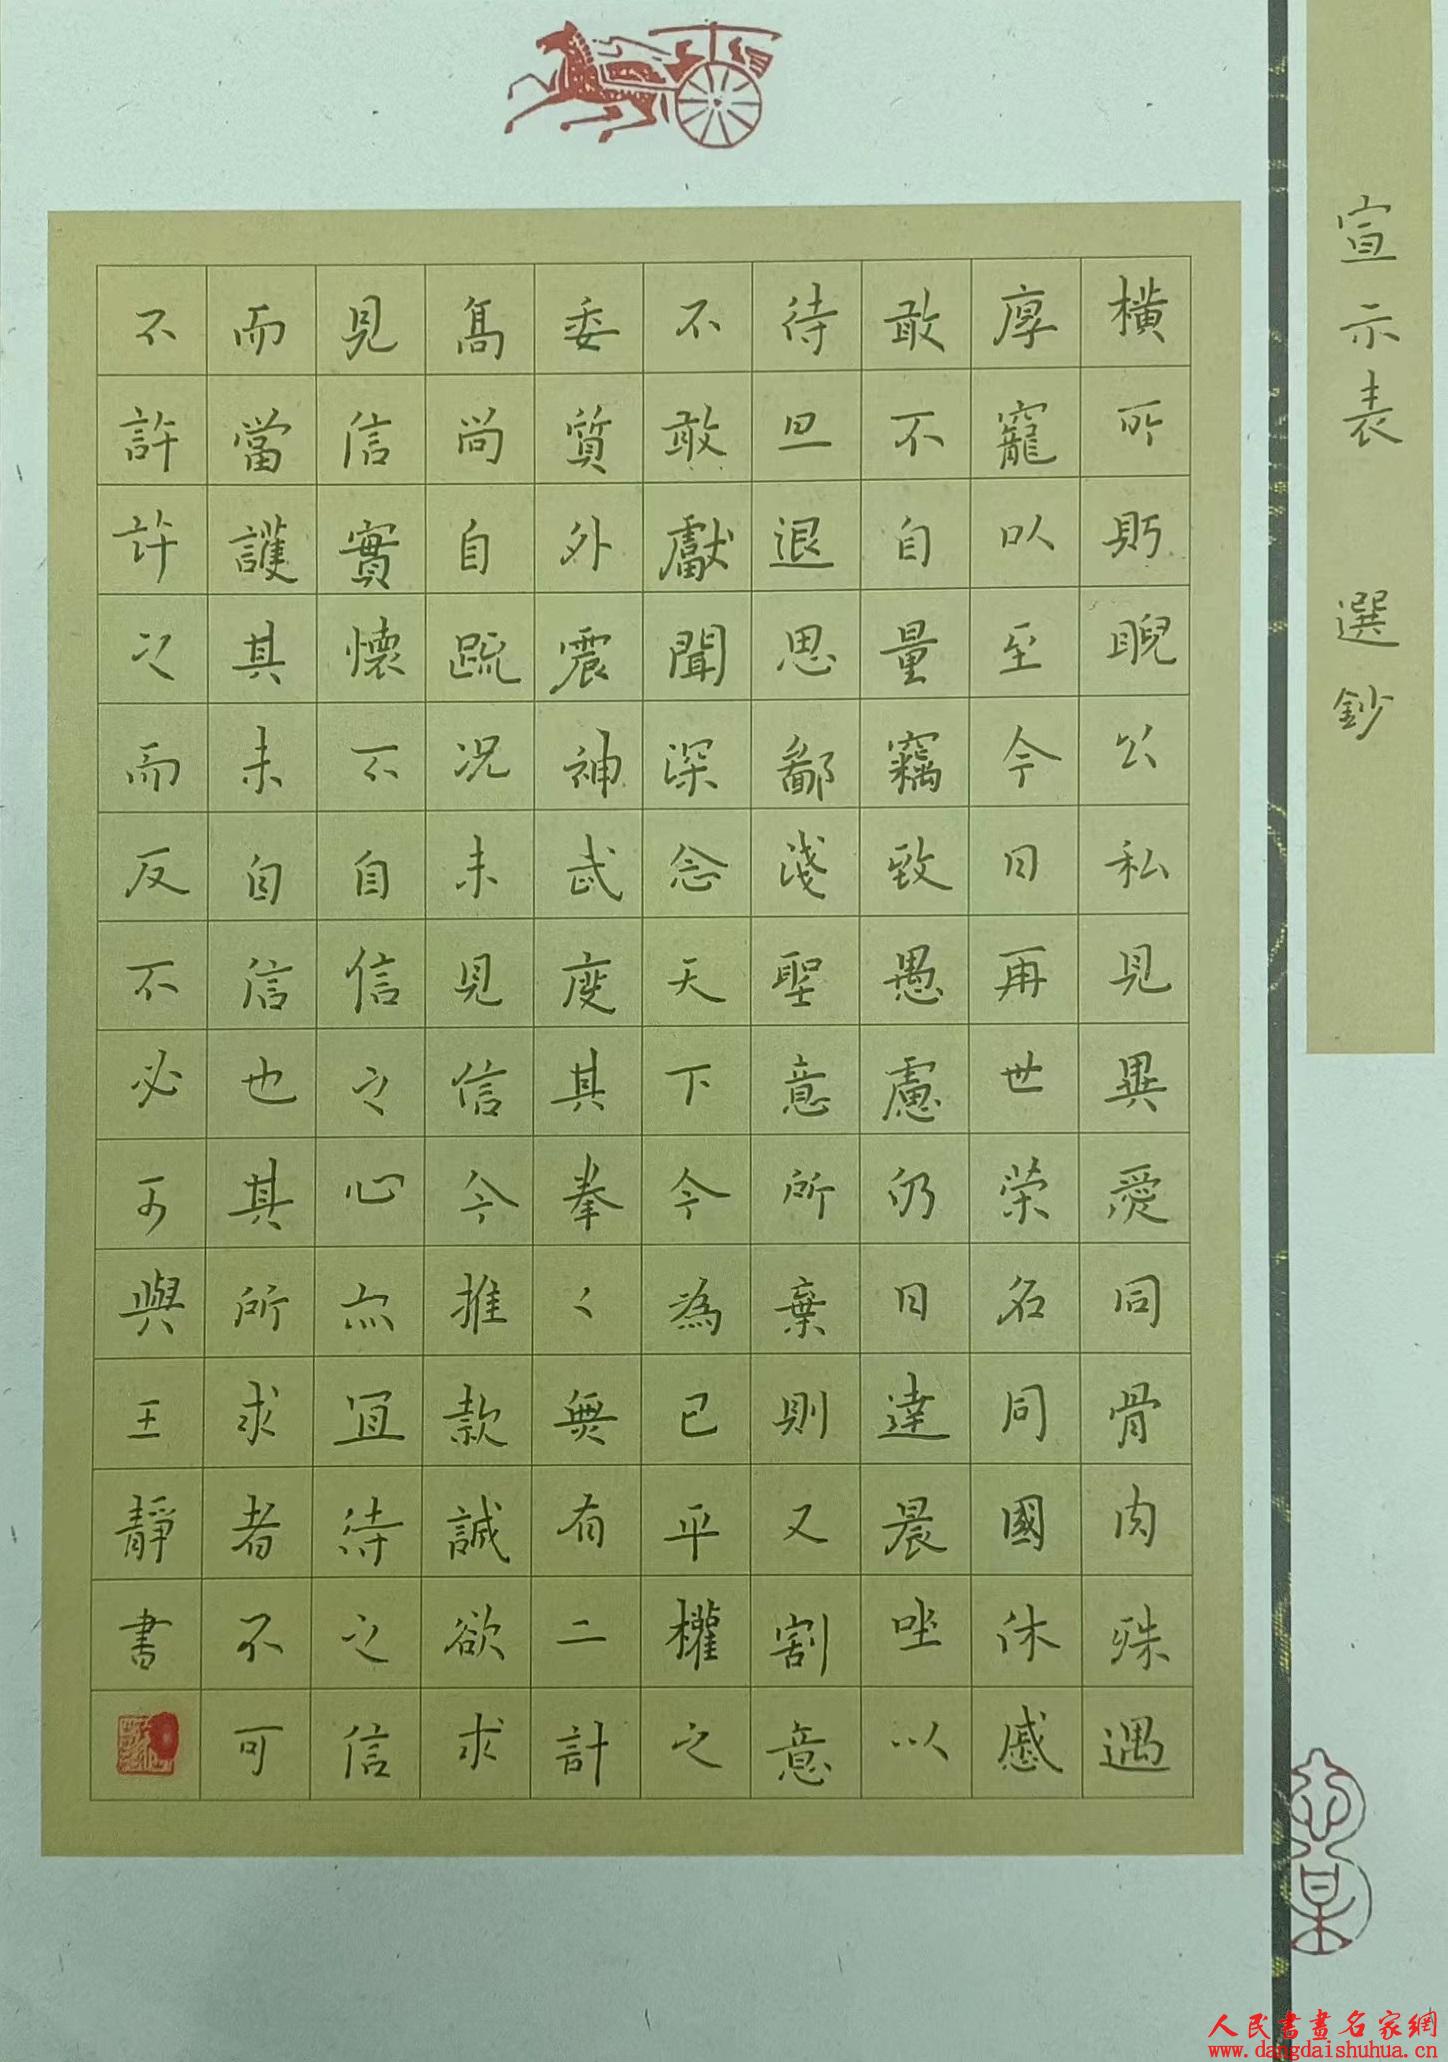 宣示表 選鈔
横所眄睨公私見異愛同骨肉殊遇
厚寵以至今日再世榮名同國休慼
敢不自量竊致愚慮仍日達晨坐以
待旦退思鄙淺聖意所棄則又割意
不敢獻聞深念天下今為已平權之
委質外震神武度其拳〻無有二計
高尚自疏況未見信今推款誠欲求
見信實懷不自信之心亦宜待之信
而當護其未自信也其所求者不可
不許許之而反不必可與王靜書
人民書畫名家網
www.dangdaishuhua.cn